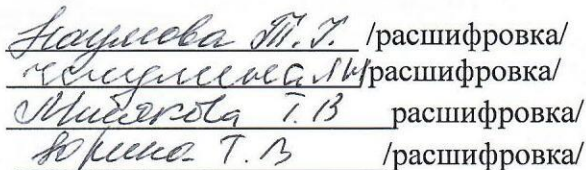 Наумова Т.Г. /расшифровка/
/расшифровка/
Т.В расшифровка/
Юрина Т.В /расшифровка/